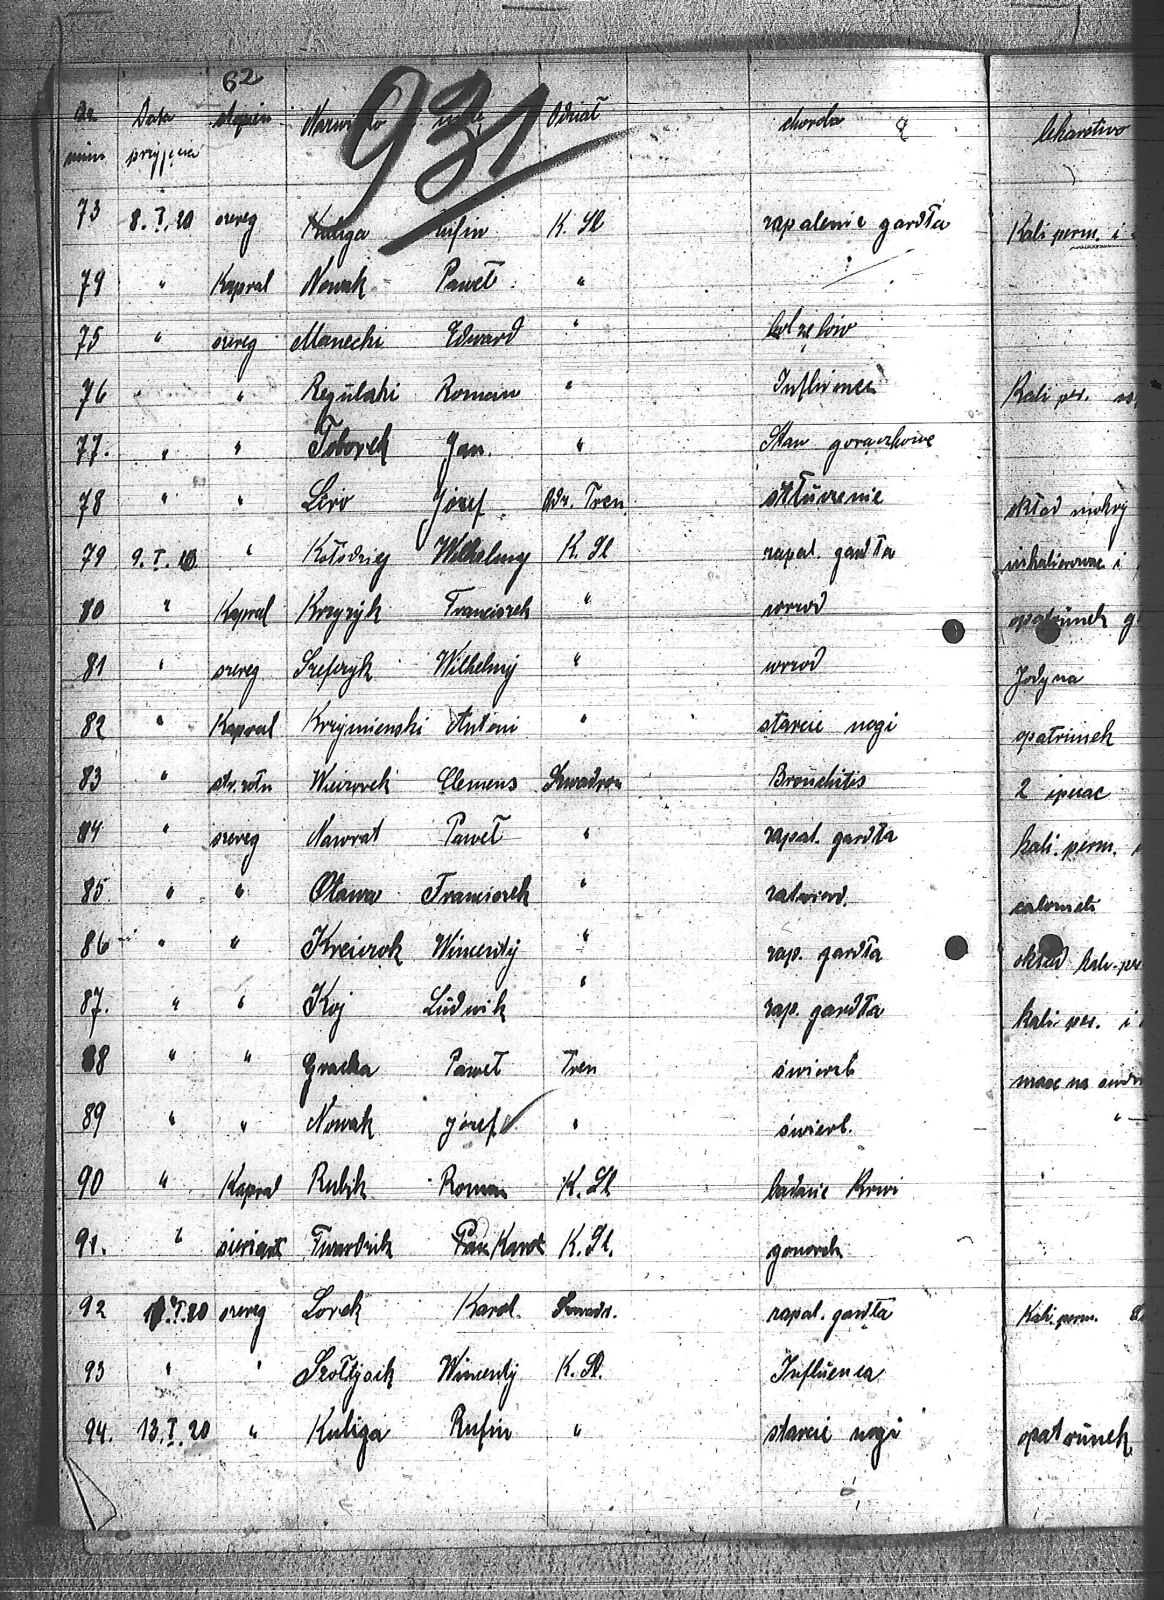 62
931
Data stopień Nazwisko imię Odział choroba lekarstwo
num przyjęcia
73 8. I. 20 szereg Kuliga Rufin K. Sl zapalenie gardła Kali perm. i
74 " Kapral Nowak Paweł "
75 " szereg Manecki Edward " ból zębów
76 " " Regulski Roman " Influenca Kali per.
77. " " Toborek Jan. " Stan gorączkowe
78 " " Józef Odz. Tren. stłuczenie okład mokry
79 9. I. 20 " Kołodziej Wilhelmy K. Sl zapal. gardła i
80 " Kapral Krzyżyk Franciszek " wrzod opatrunek
81 " szereg Szefczyk Wilhelmy " wrzod Jodyna
82 " Kapral Krzymienski Antoni " starcie nogi opatrunek
83 " Wieczorek Clemens Szwadron Bronchitis 2 ipecac
84 " szereg Nawrat Paweł " zapal. gardła kali. perm.
85 " " Oława Franciszek " calomeli
86 " " Wincenty " zap. gardła okład kali-per
87. " " Koj Ludwik " zap. gardła kali per. i
88 " " Gracka Paweł Tren świerzb masc na
89 " " Nowak Józef " świerb. "
90 " Kapral Rubik Roman K. Sl badanie Krwi
91. " Twardzik Karol K. Sl.
92 I. 20 szereg Lorek Karol. Szwadr. zapal. gardła Kali. perm.
93 " " Szołtysik Wincenty K. Sl. Influenca
94. 13. I. 20 " Kuliga Rufin " starcie nogi opatrunek